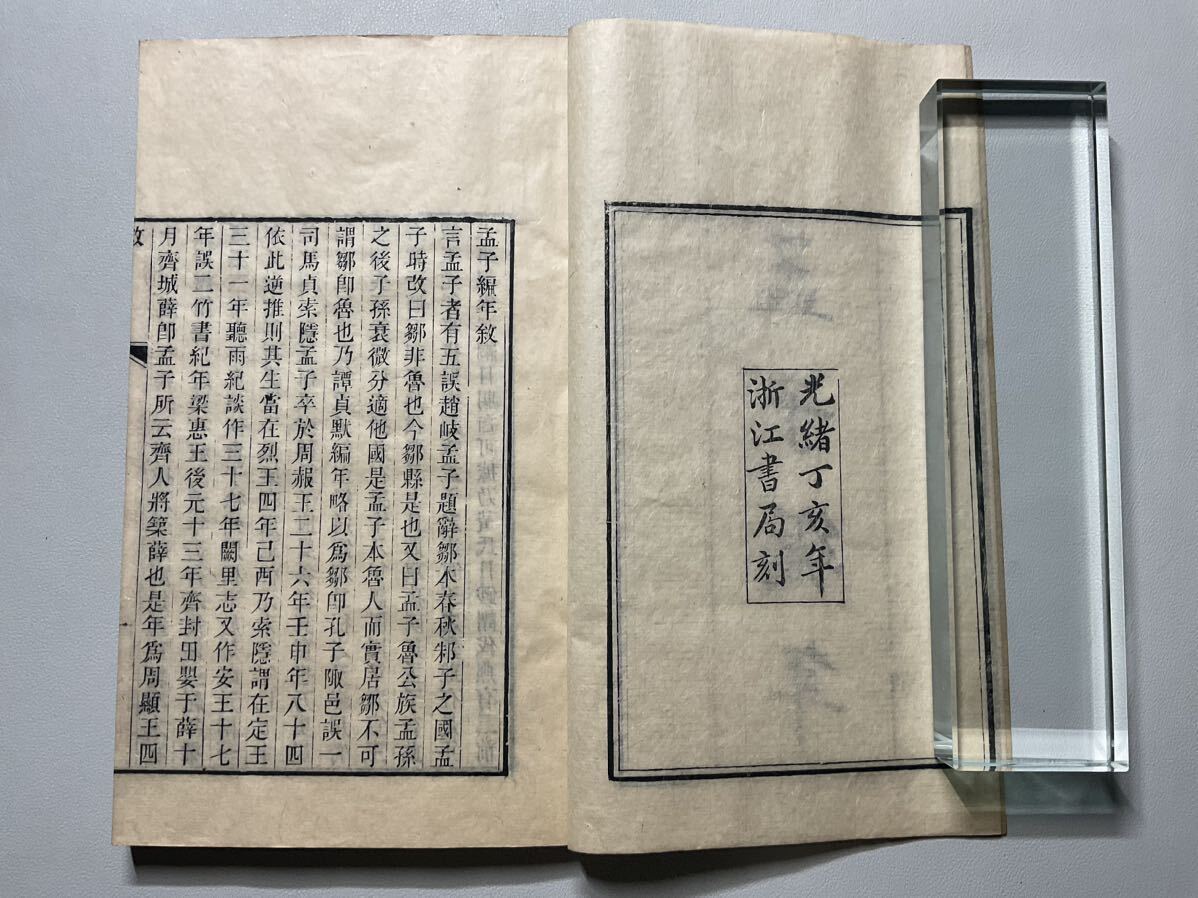 光緒丁亥年
浙江書局刻
孟子編年敘
言孟子者有五誤趙岐孟子題辭鄒本春秋邾子之國孟
子時改曰鄒非魯也今鄒縣是也又曰孟子魯公族孟孫
之後子孫衰微分適他國是孟子本魯人而實居鄒不可
謂鄒卽魯也乃譚貞默編年略以爲鄒卽孔子陬邑誤一
司馬貞索隱孟子卒於周赧王二十六年壬申年八十四
依此逆推則其生當在烈王四年己酉乃索隱謂在定王
三十一年聽雨紀談作三十七年闕里志又作安王十七
年誤二竹書紀年梁惠王後元十三年齊封田嬰于薛十
月齊城薛卽孟子所云齊人將築薛也是年爲周顯王四